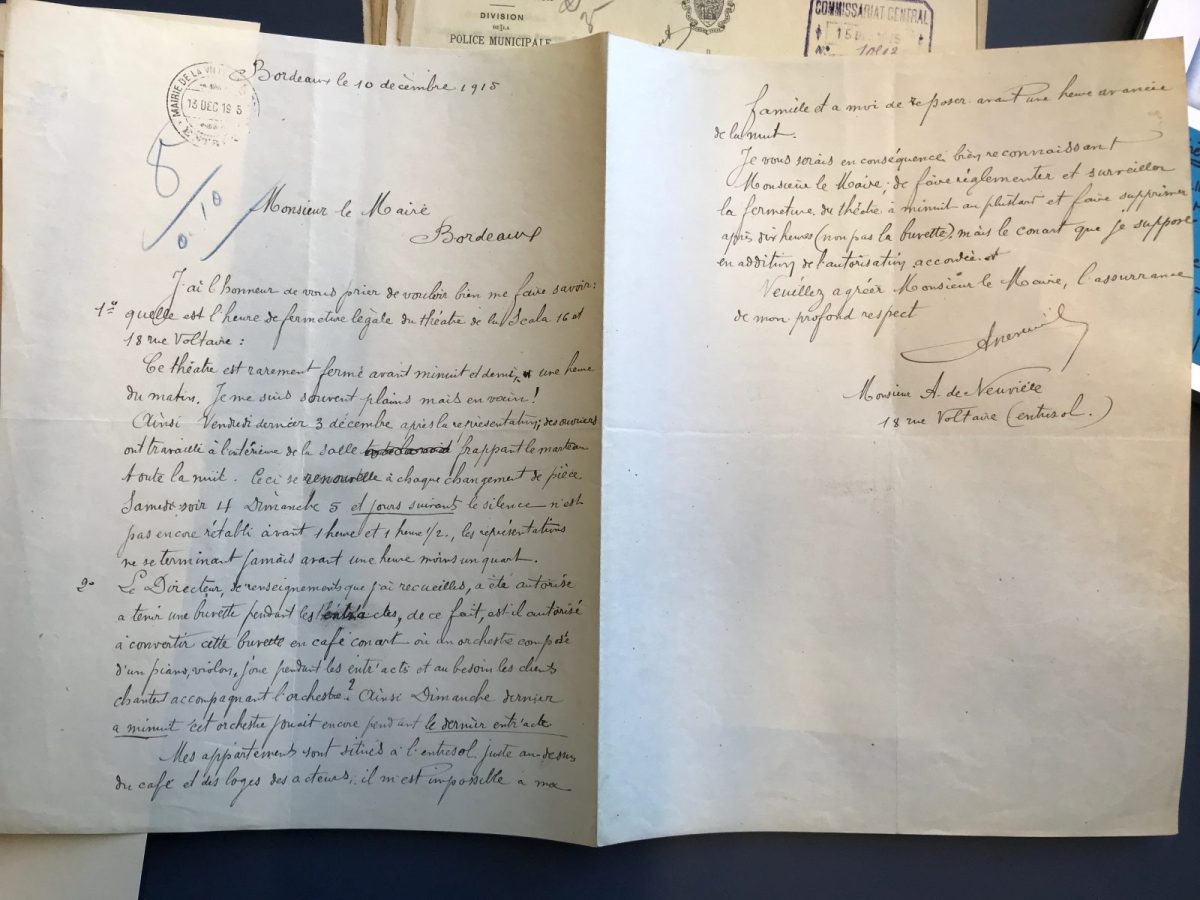 DIVISION
DE LA
POLICE MUNICIPALE
COMMISSARIAT CENTRAL
15 DEC 1915
MAIRIE DE LA VILLE
13 DEC 19 5
8/10
Bordeaux le 10 décembre 1915
Monsieur le Maire
Bordeaux
J'ai l'honneur de vous prier de vouloir bien me faire savoir:
1º quelle est l'heure de fermeture légale du théatre de la Scala 16 et
18 rue Voltaire :
Ce théatre est rarement fermé avant minuit et demi, une heure
du matin. Je me suis souvent plains mais en vain!
Ainsi Vendredi dernier 3 décembre après la représentation; des ouvriers
ont travaillé à l'intérieure de la salle frappant le marteau
toute la nuit. Ceci se renouvelle à chaque changement de pièce
Samedi soir 4 Dimanche 5 et jours suivants le silence n'est
pas encore rétabli avant 1 heure et 1 heure 1/2., les représentations
ne se terminant jamais avant une heure moins un quart.
2º Le Directeur, de renseignements que j'ai recueilles, a été autorisé
a tenir une buvette pendant les entr'actes, de ce fait, est il autorisé
à convertir cette buvette en café conart où un orchestre composé
d'un piano, violon, joue pendant les entr'acts et au besoin les clients
chantent accompagnant l'orchestre? Ainsi Dimanche dernier
a minuit cet orchestre jouait encore pendant le dernier entr'acte
Mes appartements sont situés à l'entresol juste au-dessus
du café et des loges des acteurs; il m'est impossible à ma
famille et a moi de reposer avant une heure avancée
de la nuit.
Je vous serais en conséquence bien reconnaissant
Monsieur le Maire, de faire réglementer et surveiller
la fermeture du théatre à minuit au plus tard et faire supprimer
après dix heures (non pas la buvette) mais le conart que je suppose
en addition de l'autorisation accordée
Veuillez agréer Monsieur le Maire, l'assurrance
de mon profond respect
Monsieur A. de Neuvière
18 rue Voltaire (entresol.)